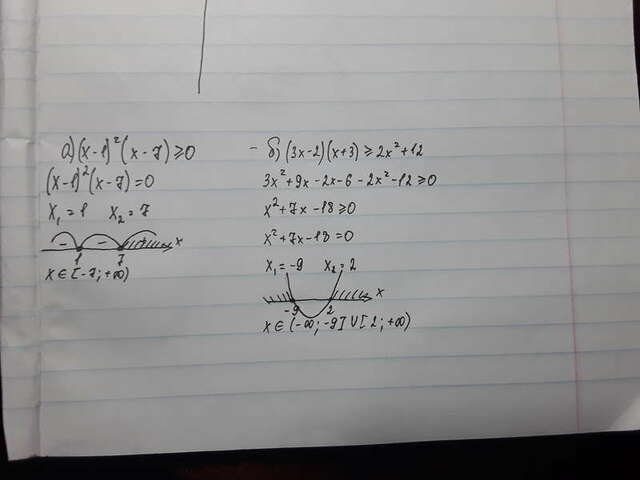 а) (x-1)²(x-7)≥0
(x-1)²(x-7)=0
x₁=1 x₂=7
- - + x
1 7
x∈[-7;+∞)
- б) (3x-2)(x+3)≥2x²+12
3x²+9x-2x-6-2x²-12≥0
x²+7x-18≥0
x²+7x-18=0
x₁=-9 x₂=2
x
-9 2
x∈(-∞;-9]∪[2;+∞)